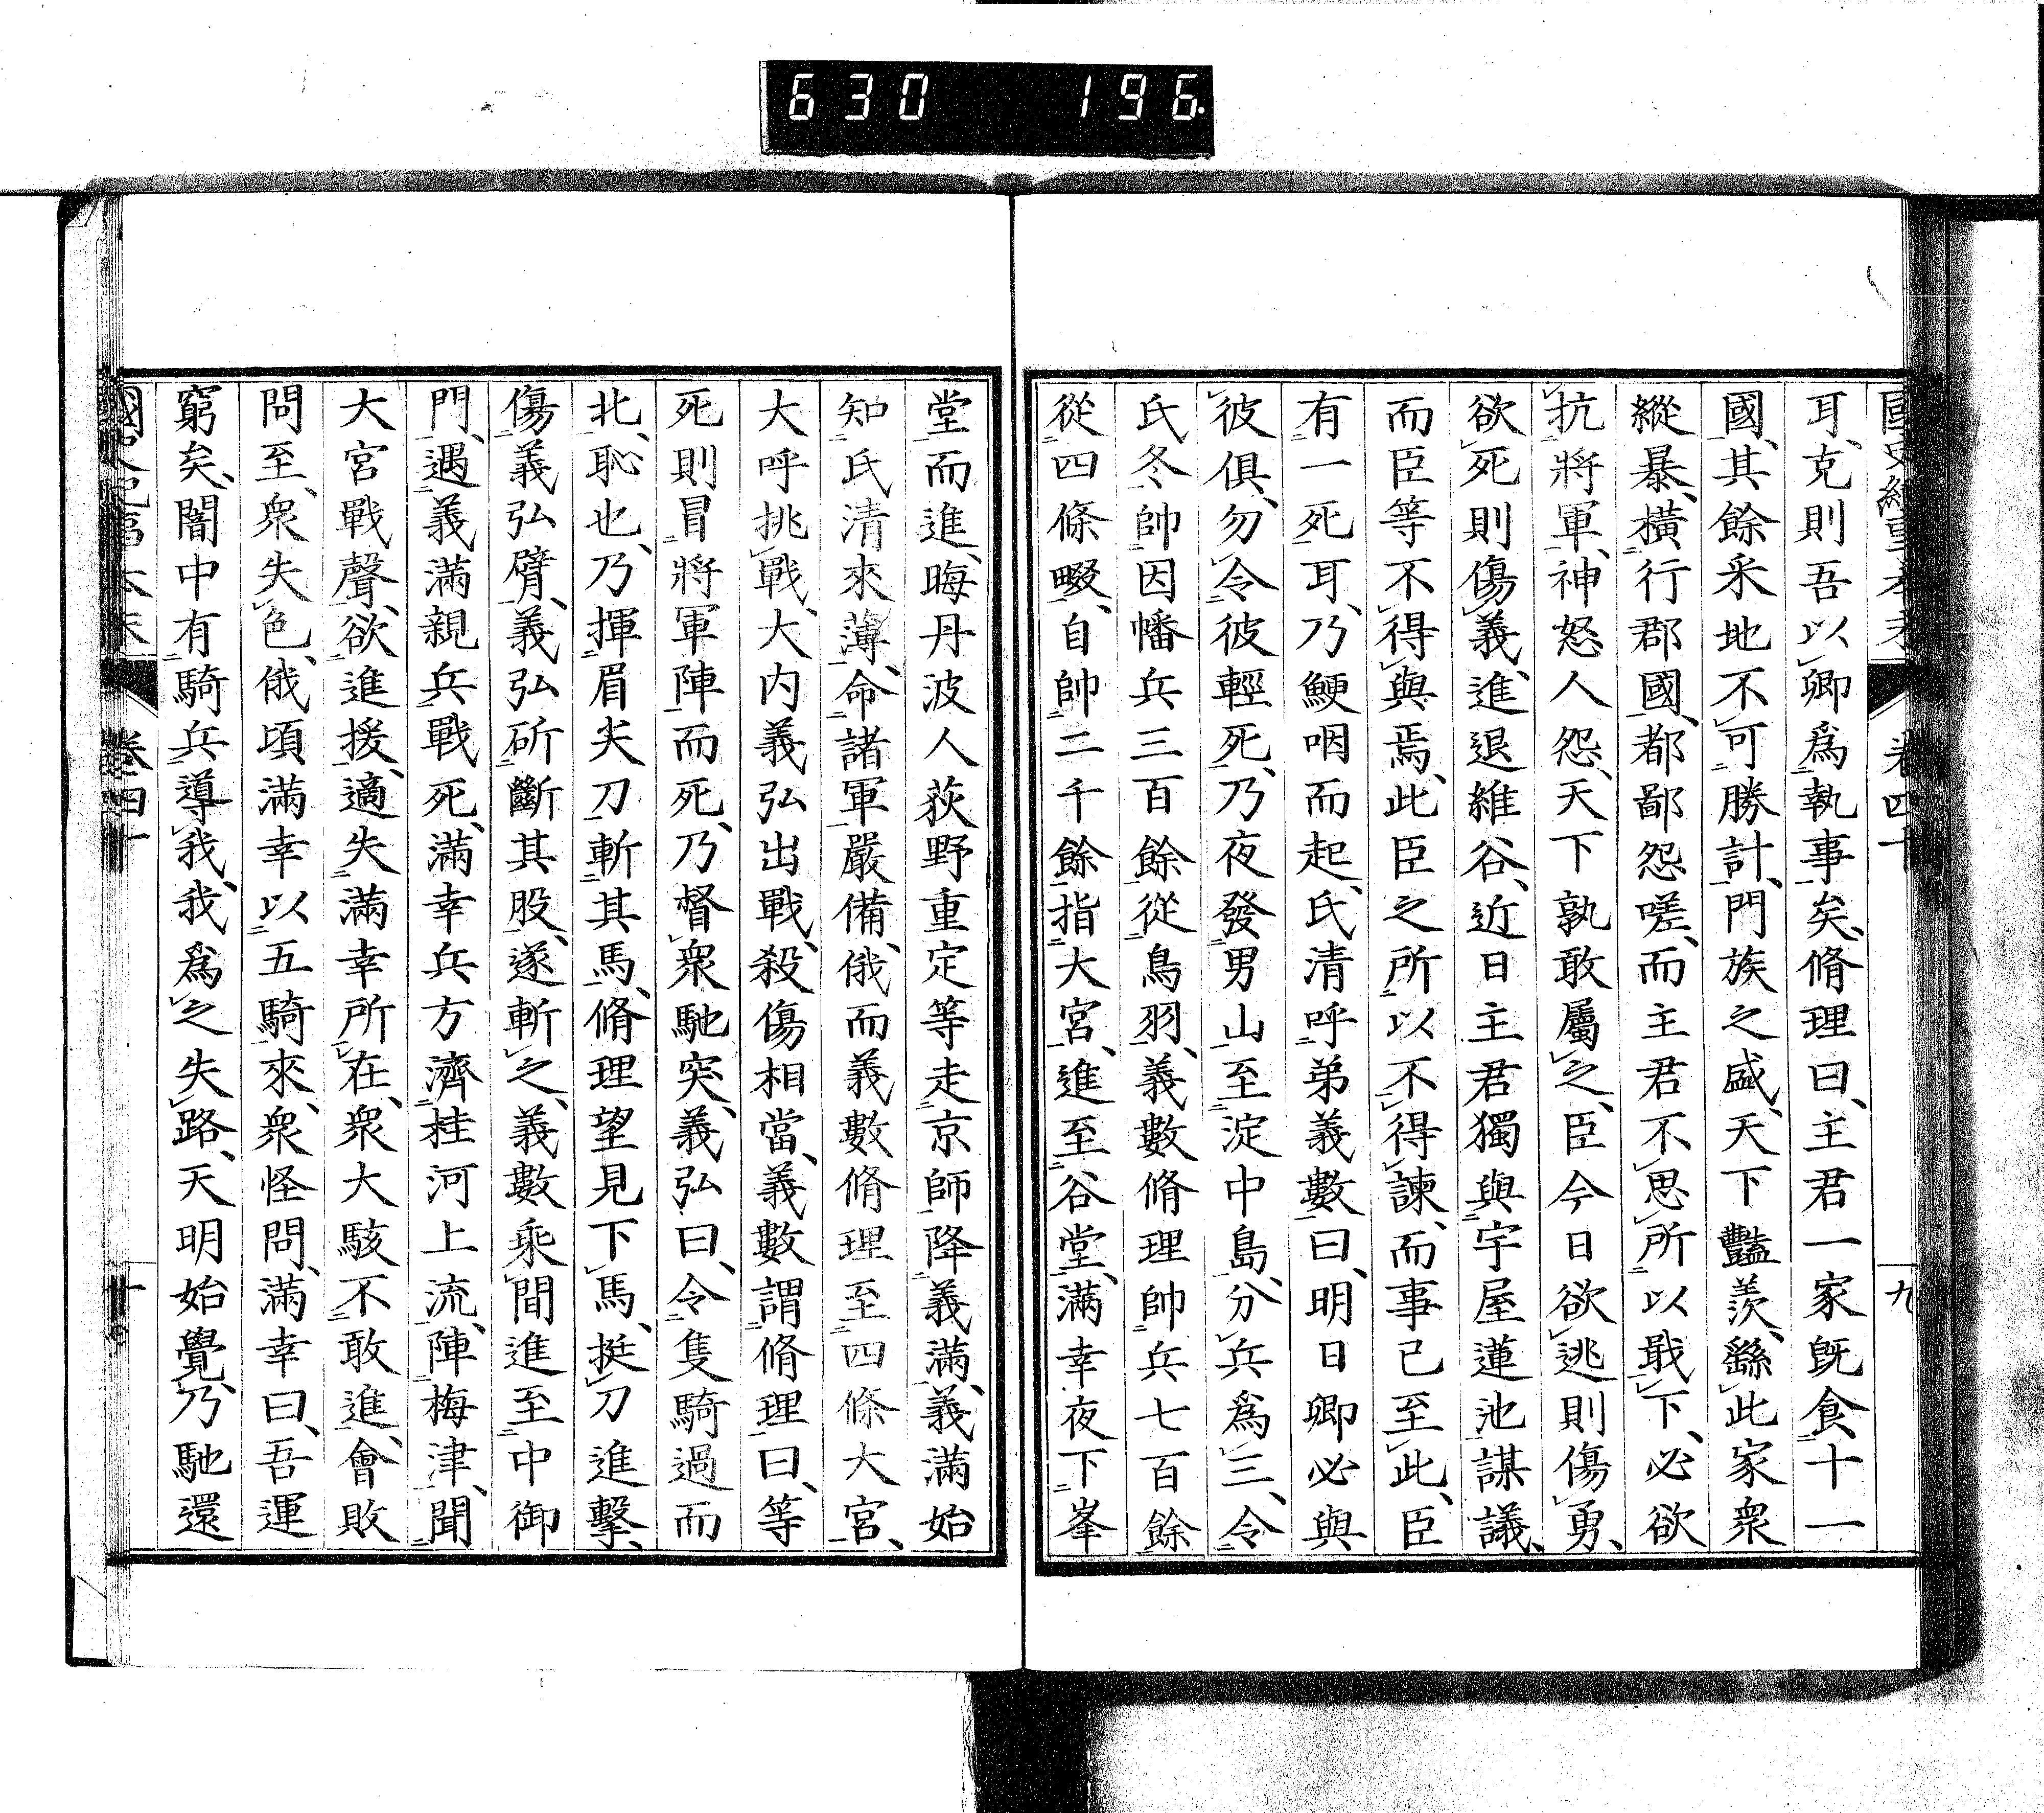 630 196
卷四十
九
耳、克則吾以卿爲執事矣、脩理曰、主君一家旣食十一
國、其餘釆地不可勝計、門族之盛、天下豔羨、繇此家衆
縱暴、橫行郡國、都鄙怨嗟、而主君不思所以戢下、必欲
抗將軍、神怒人怨、天下孰敢屬之、臣今日欲逃則傷勇、
欲死則傷義、進退維谷、近日主君獨與宇屋蓮池謀議、
而臣等不得與焉、此臣之所以不得諫、而事已至此、臣
有一死耳、乃鯁咽而起、氏清呼弟義數曰、明日卿必與
彼俱、勿令彼輕死、乃夜發男山至淀中島、分兵爲三、令
氏冬帥因幡兵三百餘從鳥羽、義數脩理帥兵七百餘
從四條畷、自帥二千餘指大宮、進至谷堂、滿幸夜下峯
堂而進、晦丹波人荻野重定等走京師降義滿、義滿始
知氏清來薄、命諸軍嚴備、俄而義數脩理至四條大宮、
大呼挑戰、大内義弘出戰、殺傷相當、義數謂脩理曰、等
死則冒將軍陣而死、乃督衆馳突、義弘曰、令隻騎過而
北、恥也、乃揮眉尖刀斬其馬、脩理望見下馬、挺刀進擊、
傷義弘臂、義弘斫斷其股、遂斬之、義數乘間進至中御
門、遇義滿親兵戰死、滿幸兵方濟桂河上流、陣梅津、聞
大宮戰聲、欲進援、適失滿幸所在、衆大駭不敢進、會敗
問至、衆失色、俄頃滿幸以五騎來、衆怪問、滿幸曰、吾運
窮矣、闇中有騎兵導我、我爲之失路、天明始覺、乃馳還
國史紀事本末
卷四十
十